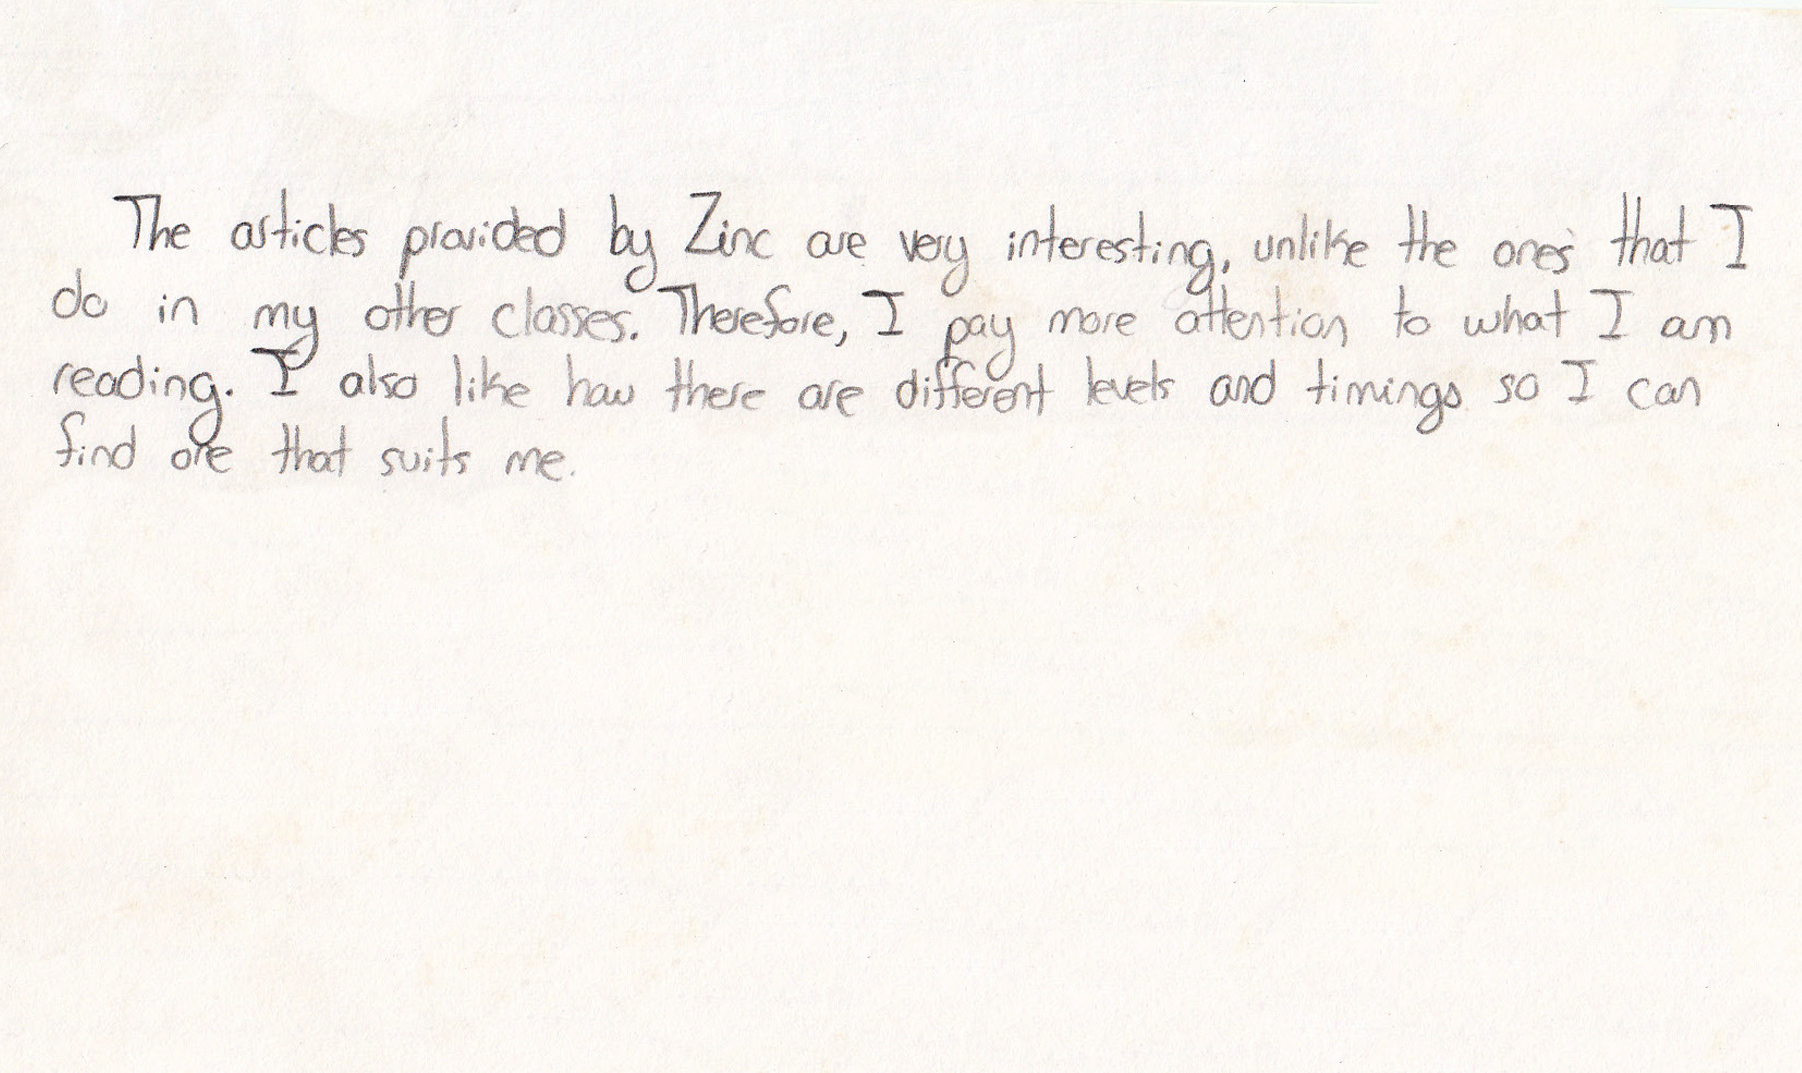 The articles provided by Zinc are very interesting, unlike the ones that I
do in my other classes. Therefore, I pay more attention to what I am
reading. I also like how there are different levels and timings so I can
find one that suits me.